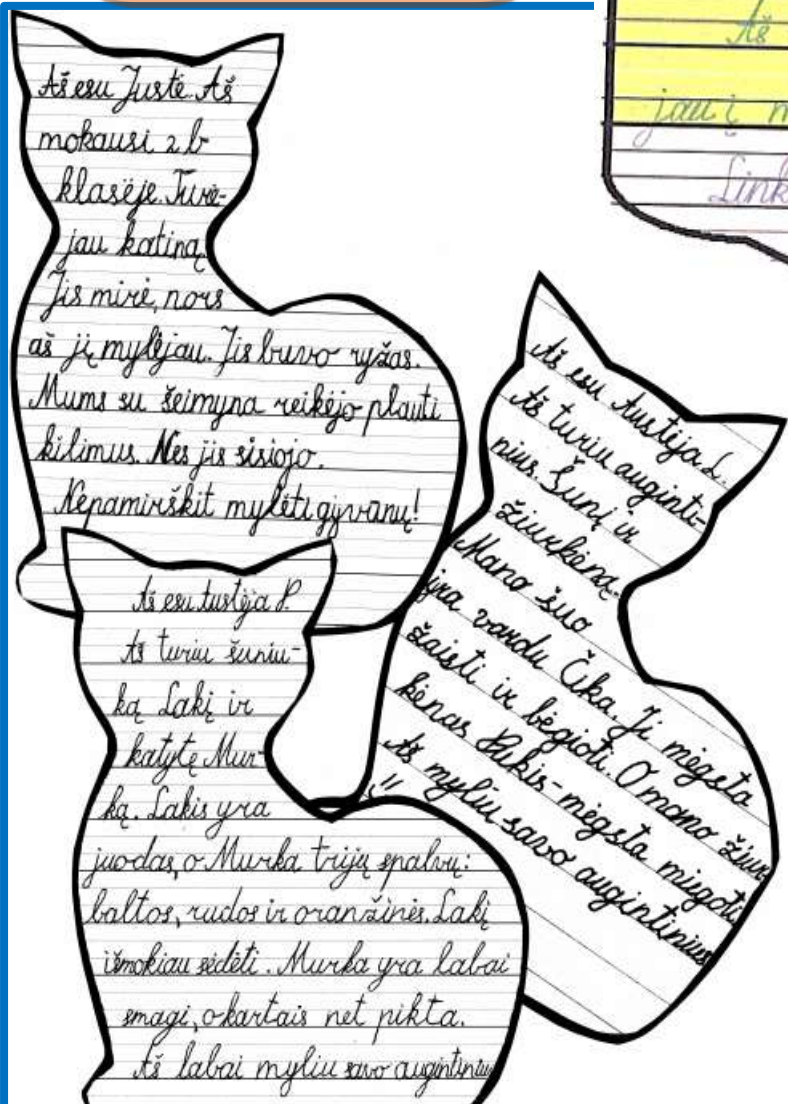 Aš esu Justė. Aš
mokausi 2 b
klasėje. Turė-
jau katiną.
Jis mirė, nors
aš jį mylėjau. Jis buvo ryžas.
Mums su šeimyna reikėjo plauti
kilimus. Nes jis sisiojo.
Nepamirškit mylėti gyvūnų!
Aš esu Austėja P.
Aš turiu šuniu-
ką Lakį ir
katytę Mur-
ką. Lakis yra
juodas, o Murka trijų spalvų:
baltos, rudos ir oranžinės. Lakį
išmokiau sėdėti. Murka yra labai
smagi, o kartais net pikta.
Aš labai myliu savo augintinius
Aš esu Austėja L.
Aš turiu auginti-
nius. Šunį ir
žiurkėną.
Mano šuo
yra vardu Čika. Ji mėgsta
žaisti ir bėgioti. O mano žiur
kėnas Pukis-mėgsta miegoti.
Aš myliu savo augintinius
!!
Aš
jau į m
Link